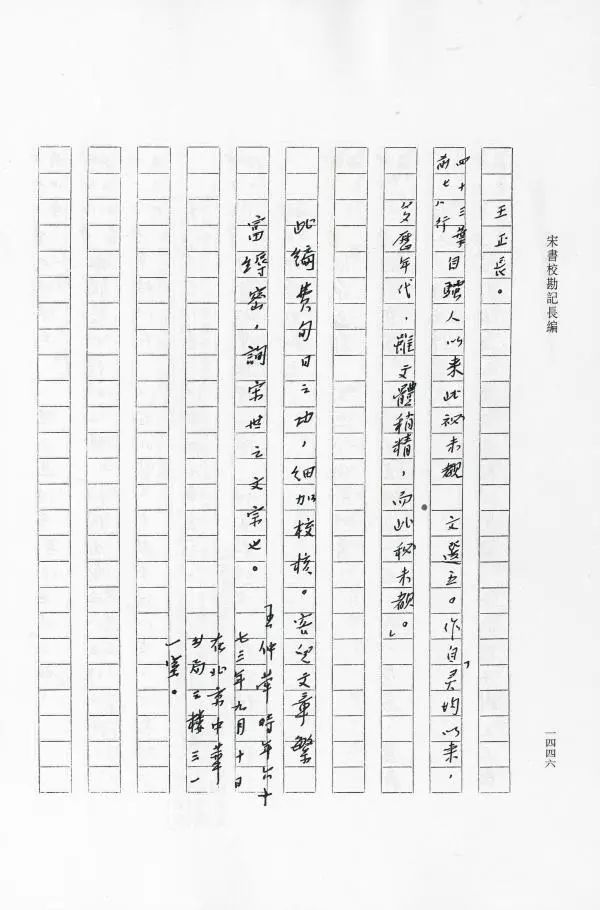 宋書校勘記長編
一四四六
王正長。
四十三葉前七八行
自騷人以來此祕未覩 文選五。作「自灵均以来，
多歷年代，雖文體稍精，而此秘未覩。」
此編费旬日之功，细加校核。文章繁
富缛密，詢宋世之文宗也。
王仲犖時年六十
七三年九月十日
在北京中華
书局三樓三一
一室。